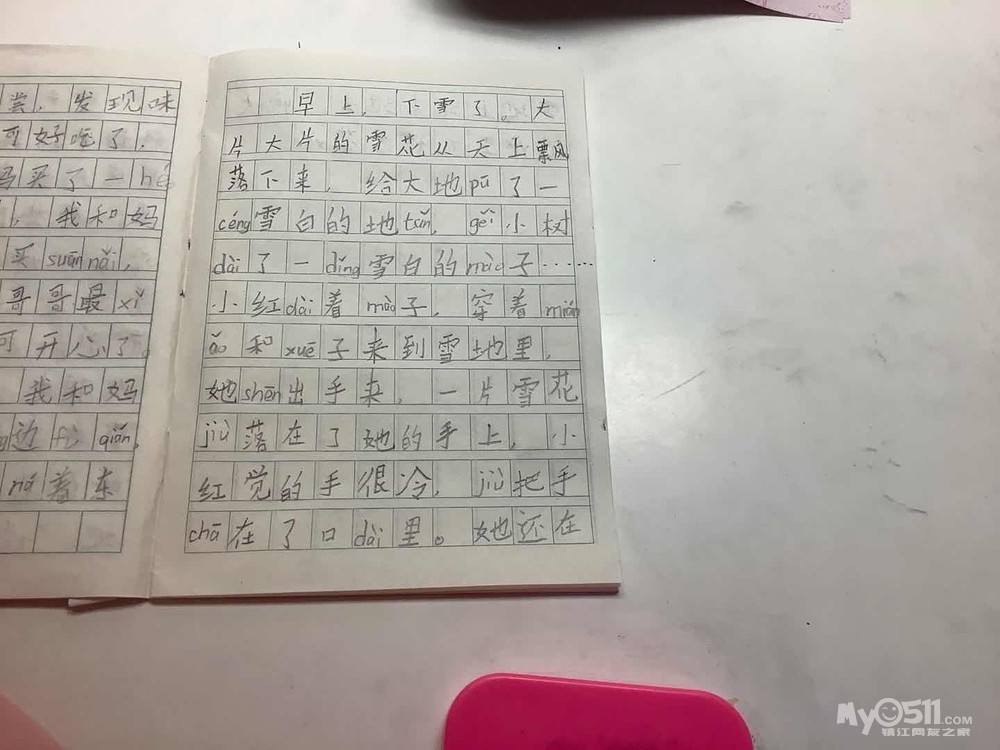 尝，发现味
可好吃了，
妈买了一hé
，我和妈
买suānnǎi，
哥哥最xǐ
可开心了。
我和妈
边fù qián，
ná着东
早上，下雪了。大
片大片的雪花从天上飘
落下来，给大地pū了一
céng雪白的地tǎn，gěi小树
dài了一dǐng雪白的mào子……
小红dài着mào子，穿着mián
ǎo和xuē子来到雪地里，
她shēn出手来，一片雪花
jiù落在了她的手上，小
红觉的手很冷，jiù把手
chā在了口dài里。她还在
My0511.COM
镇江网友之家